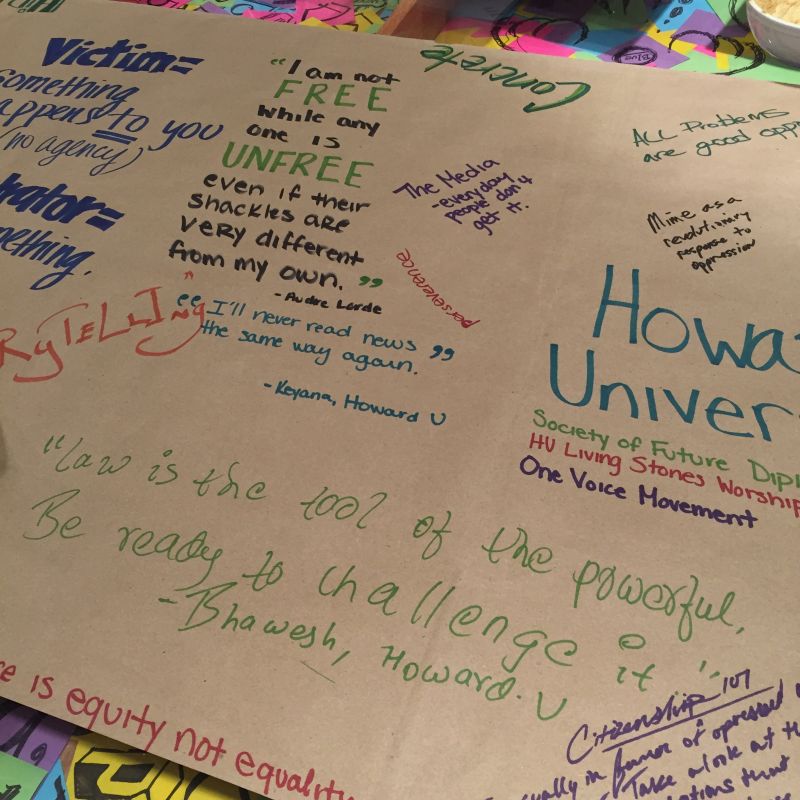 Victim=
Something
appens to you
(no agency)
rator=
mething.
RyTELLINg
"I am not
FREE
while any
one is
UNFREE
even if their
shackles are
very different
from my own."
- Audre Lorde
"I'll never read news
the same way again."
- Keyana, Howard U
Concrete
The Media
- everyday
people don't
get it.
perseverence
ALL Problems
are good opp
Mime as a
revolutionary
response to
oppression
Howa
Univer
Society of Future Dipl
HU Living Stones Worship
One Voice Movement
"Law is the tool of the powerful,
Be ready to challenge it"
- Bhawesh, Howard. U
ce is equity not equality
Citizenship 101
ually in favor of opressed
Take a look at th
ptions that
Blue